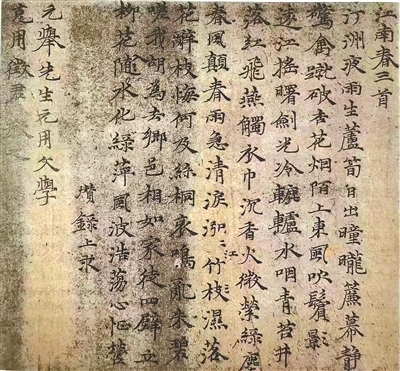 江南春三首
汀洲夜雨生蘆笋日出曈曨簾幕靜
驚禽蹴破杏花烟陌上東風吹鬢影
遠江搖曙劍光冷轆轤水咽青苔井
落紅飛燕觸衣巾沉香火微縈綠塵
春風顛春雨急清淚泓〻江竹枝濕落
花辭枝悔何及絲桐哀鳴亂朱碧
嗟我胡為去鄉邑相如家徒四壁立
柳花隨水化綠萍風波浩蕩心怔營
瓚錄上求
元舉先生元用文學
克用徵君